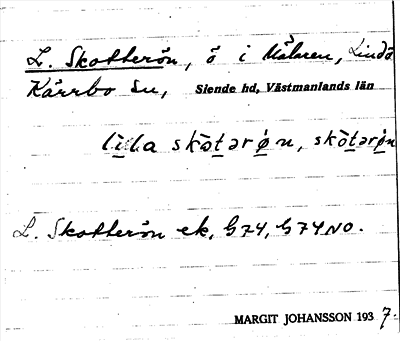 L. Skotterön, ö i Mälaren, Lindö
Kärrbo sn, Siende hd, Västmanlands län
lìl̠a skò̠tərǿ̠n, skò̠tərǿ̠n
L. Skotterön ek. G74, G74NO.
MARGIT JOHANSSON 1937.